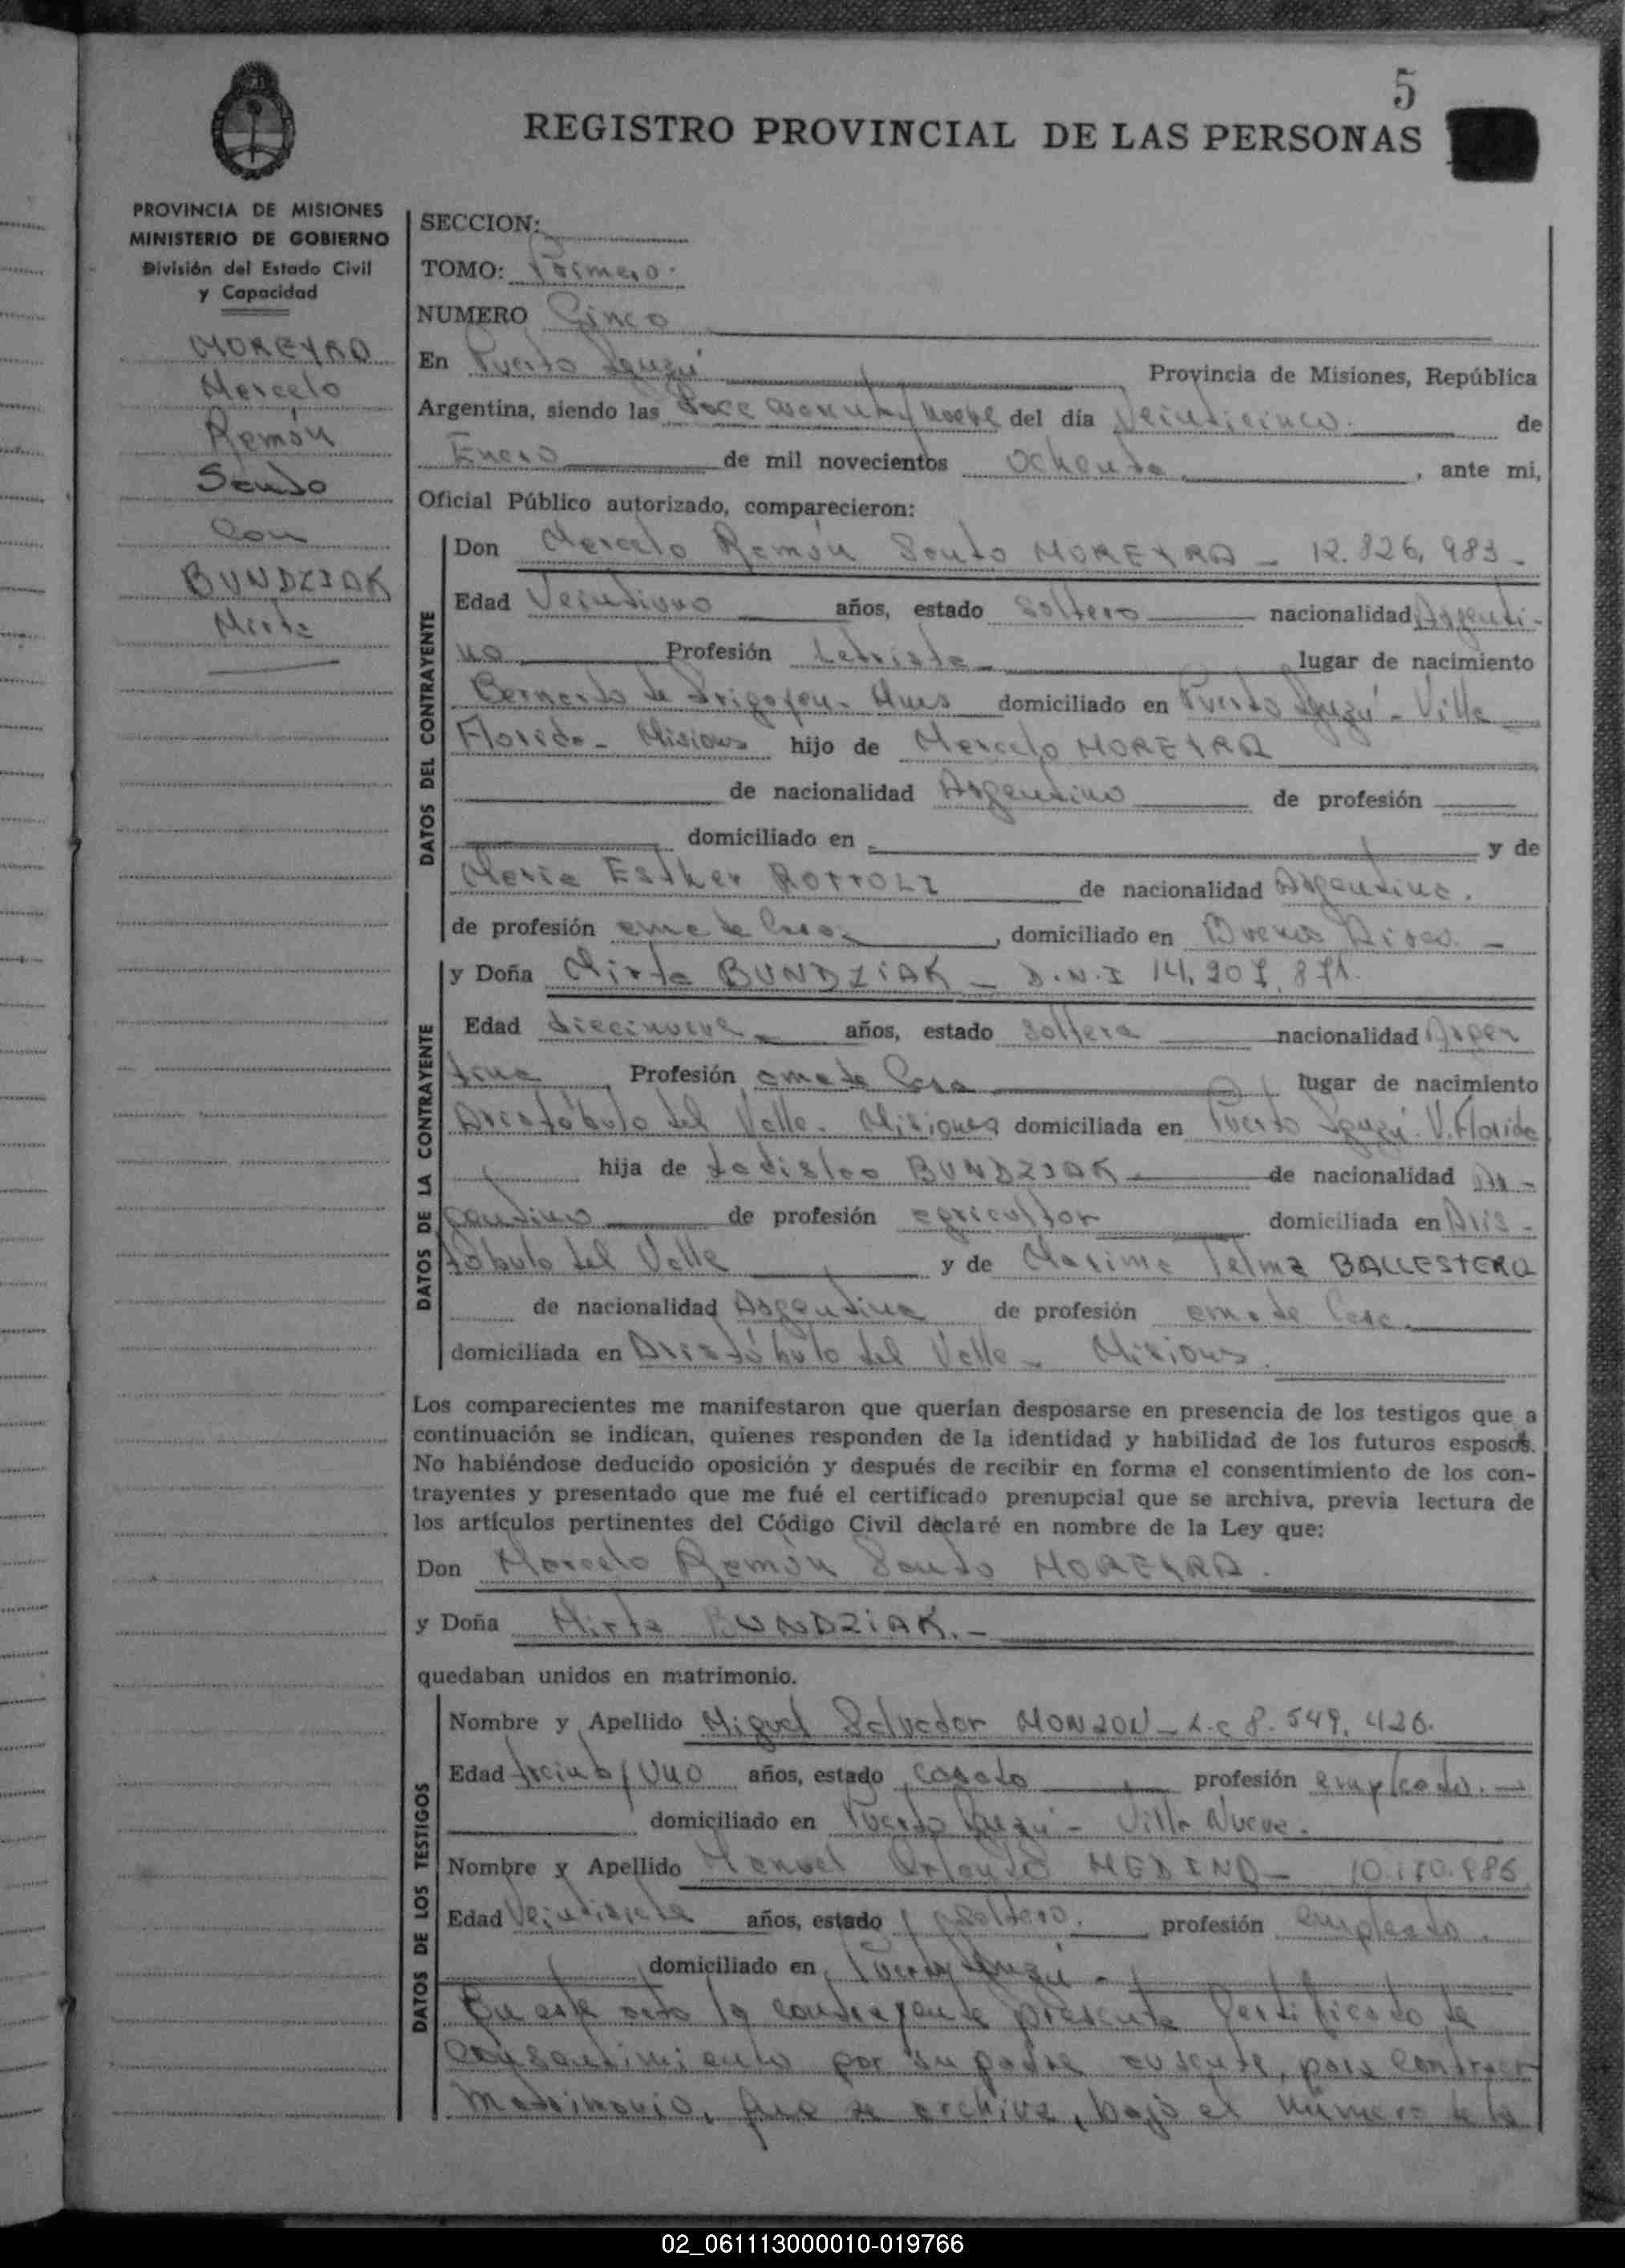 5
REGISTRO PROVINCIAL DE LAS PERSONAS
PROVINCIA DE MISIONES
MINISTERIO DE GOBIERNO
División del Estado Civil
y Capacidad
MOREYRA
Marcelo
Ramón
Santo
Con
BUNDZIAK
Mirta
SECCION:
TOMO: Primero.
NUMERO Cinco
En Puerto Iguazú Provincia de Misiones, República
Argentina, siendo las doce del día Veinticinco. de
Enero de mil novecientos Ochenta, ante mi,
Oficial Público autorizado, comparecieron:
DATOS DEL CONTRAYENTE
Don Marcelo Ramón Santo MOREYRA - 12.826.983 -
Edad Veintiuno años, estado Soltero nacionalidad Argenti-
no Profesión Letrista lugar de nacimiento
Bernardo de Irigoyen - Mnes domiciliado en Puerto Iguazú - Villa
Florida - Misiones hijo de Marcelo MOREYRA
de nacionalidad Argentino de profesión
domiciliado en y de
Maria Esther ROTTOLI de nacionalidad Argentina.
de profesión ama de Casa, domiciliado en Buenos Aires. -
DATOS DE LA CONTRAYENTE
y Doña Mirta BUNDZIAK - D.N.I 14.207.871.
Edad diecinueve años, estado Soltera nacionalidad Argen
tina Profesión ama de Casa lugar de nacimiento
Aristóbulo del Valle - Misiones domiciliada en Puerto Iguazú. V. Florida
hija de Ladislao BUNDZIAK de nacionalidad Ar-
gentino de profesión agricultor domiciliada en Aris-
tóbulo del Valle y de Maxima Telma BALLESTERO
de nacionalidad Argentina de profesión ama de Casa
domiciliada en Aristóbulo del Valle - Misiones.
Los comparecientes me manifestaron que querían desposarse en presencia de los testigos que a
continuación se indican, quienes responden de la identidad y habilidad de los futuros esposos.
No habiéndose deducido oposición y después de recibir en forma el consentimiento de los con-
trayentes y presentado que me fué el certificado prenupcial que se archiva, previa lectura de
los artículos pertinentes del Código Civil declaré en nombre de la Ley que:
Don Marcelo Ramón Santo MOREYRA.
y Doña Mirta BUNDZIAK. -
quedaban unidos en matrimonio.
DATOS DE LOS TESTIGOS
Nombre y Apellido Miguel Salvador MONZON - L.E 8.549.426.
Edad treinta y uno años, estado casado profesión empleado. -
domiciliado en Puerto Iguazú - Villa Nueva.
Nombre y Apellido Manuel Orlando MEDINA - 10.170.886
Edad Veintisiete años, estado Soltero. profesión empleado.
domiciliado en Puerto Iguazú -
En este acto la contrayente presenta Certificado de
consentimiento por su padre ausente, para contraer
Matrimonio, que se archiva, bajo el número de la
02_061113000010-019766